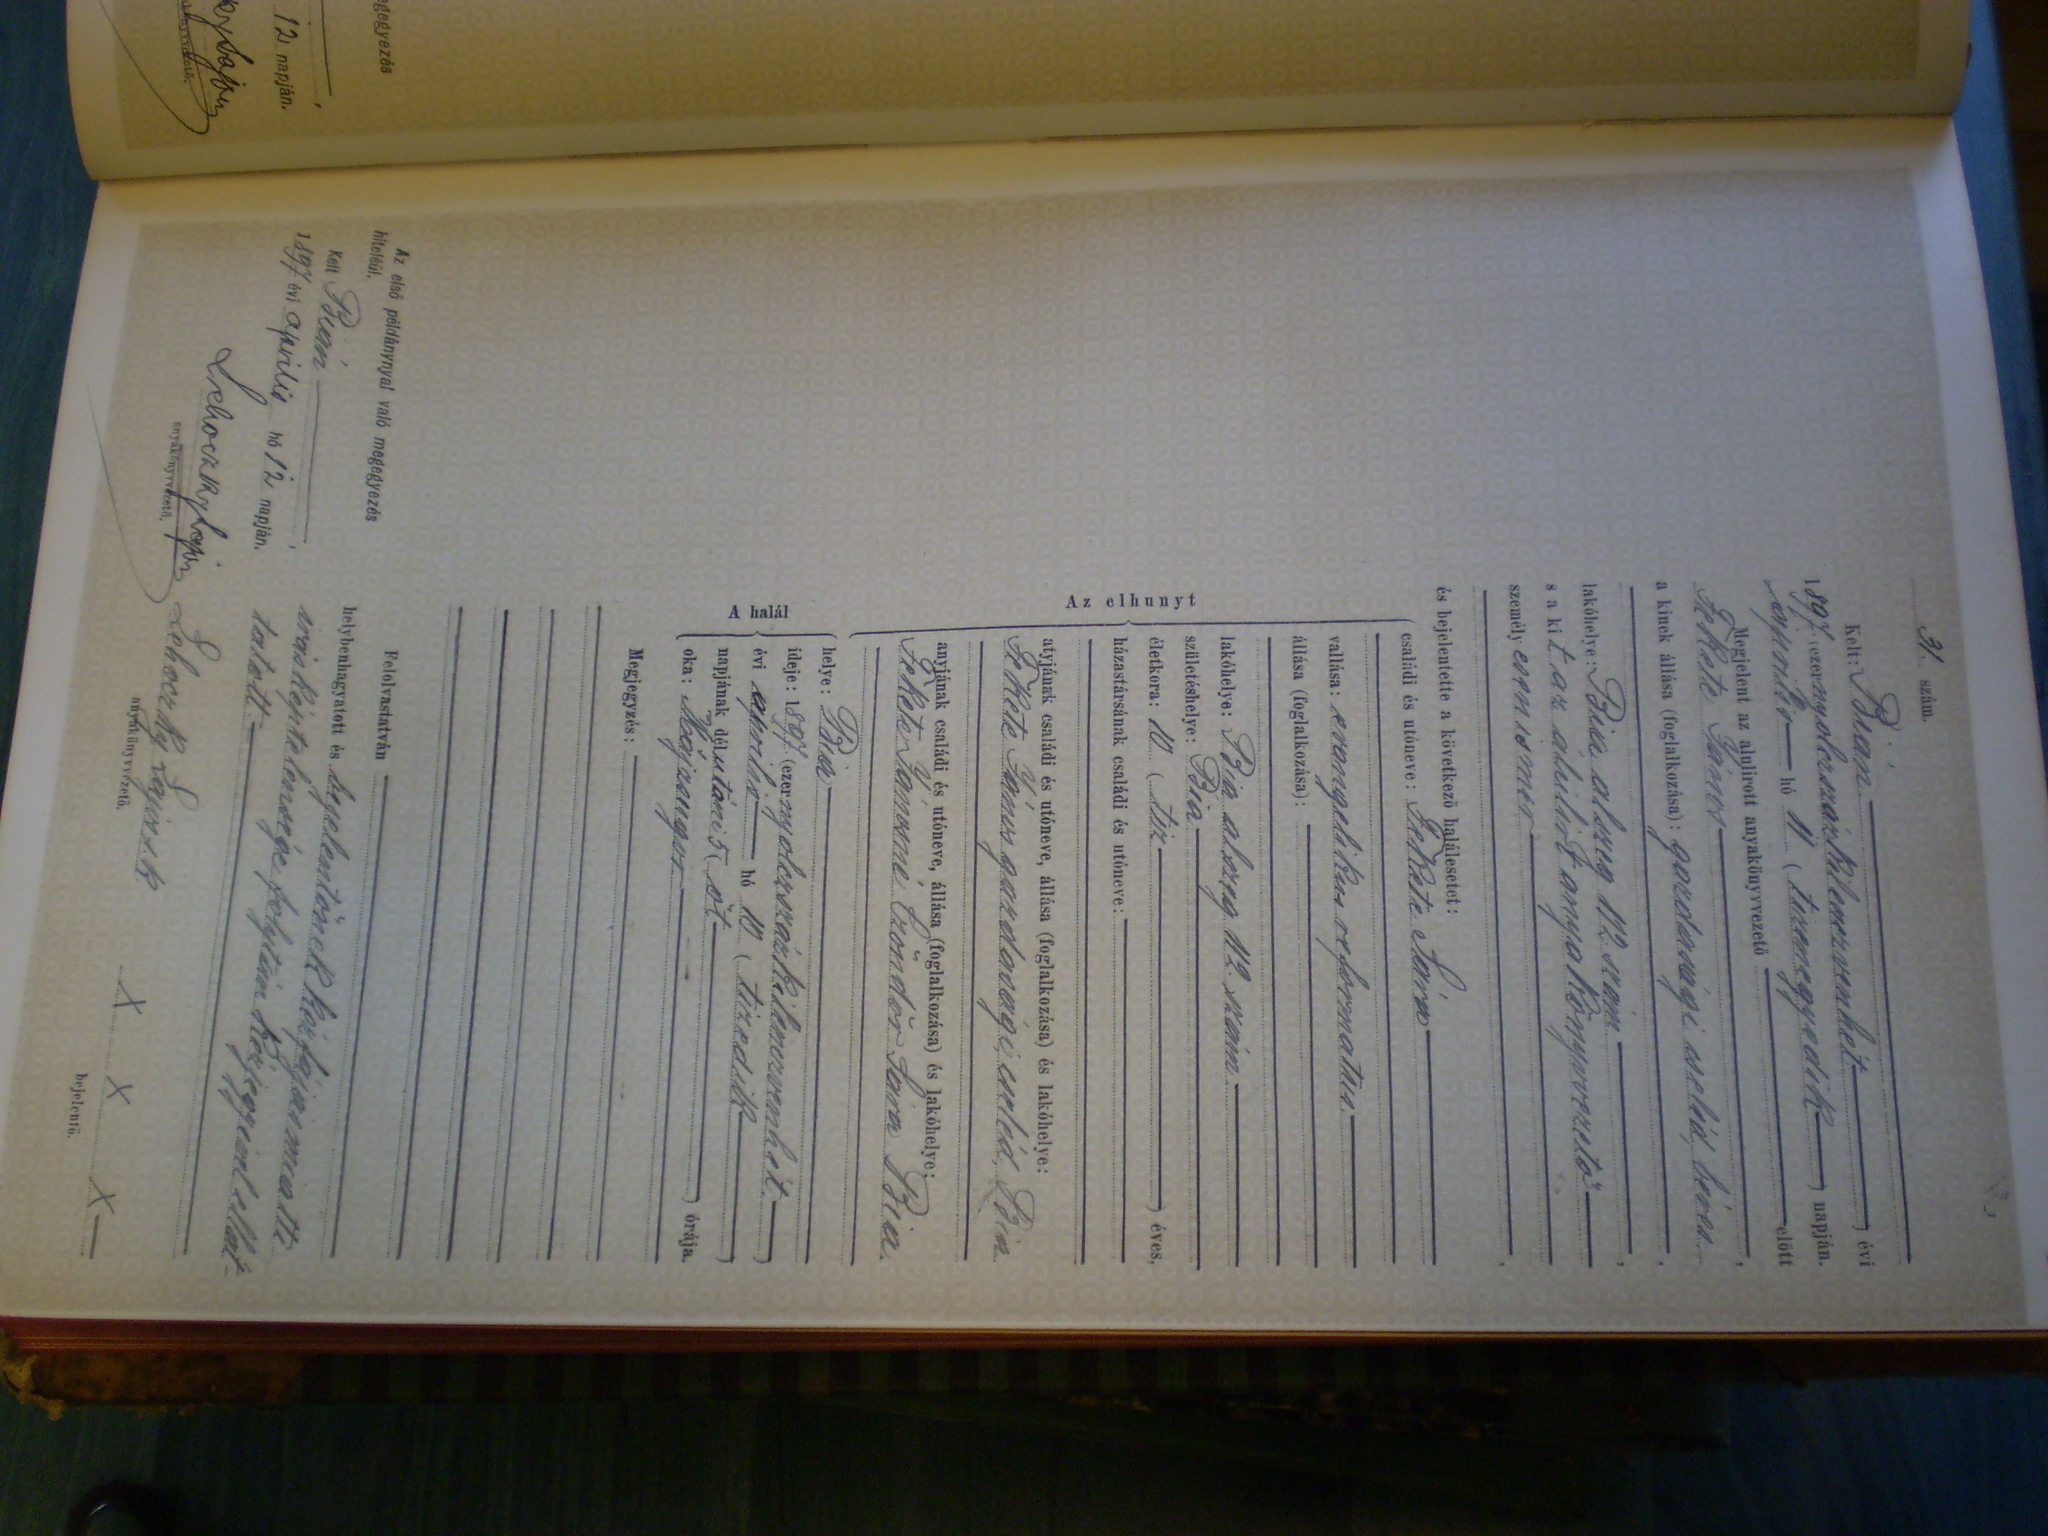 egegyezés
12 napján.
31. szám.
Kelt: Bián
1897. (ezernyolczszázkilenczvenhét) évi
április hó 11 (tizenegyedik) napján.
Megjelent az alulirott anyakönyvvezető előtt
Fekete János,
a kinek állása (foglalkozása): gazdasági cseléd, béres.
lakóhelye: Bia alszeg 112. szám,
s a k i t az alulirt anyakönyvvezető
személyesen ismer,
és bejelentette a következő halálesetet:
Az elhunyt
családi és utóneve: Fekete Sára
vallása: evangelikus reformatus.
állása (foglalkozása):
lakóhelye: Bia alszeg 112. szám.
születéshelye: Bia
életkora: 10 (tiz) éves,
házastársának családi és utóneve:
atyjának családi és utóneve, állása (foglalkozása) és lakóhelye:
Fekete János gazdasági cseléd, Bia
anyjának családi és utóneve, állása (foglalkozása) és lakóhelye:
Fekete Jánosné Czöndör Sára Bia.
A halál
helye: Bia
ideje: 1897 (ezernyolczszázkilenczvenhét.)
évi április hó 10 (tizedik)
napjának délutáni 5 (öt) órája.
oka:
Megjegyzés:
Felolvastatván
helybenhagyatott és bejelentőnek kézfájása miatti
irásképtelensége folytán kézjegyénél ellát-
tatott.
Lehoczky Lajos s. k.
anyakönyvvezető.
X X X
bejelentő.
Az első példánynyal való megegyezés
hiteléül.
Kelt Bián,
1897 évi április hó 12 napján.
Lehoczky Lajos
anyakönyvvezető.